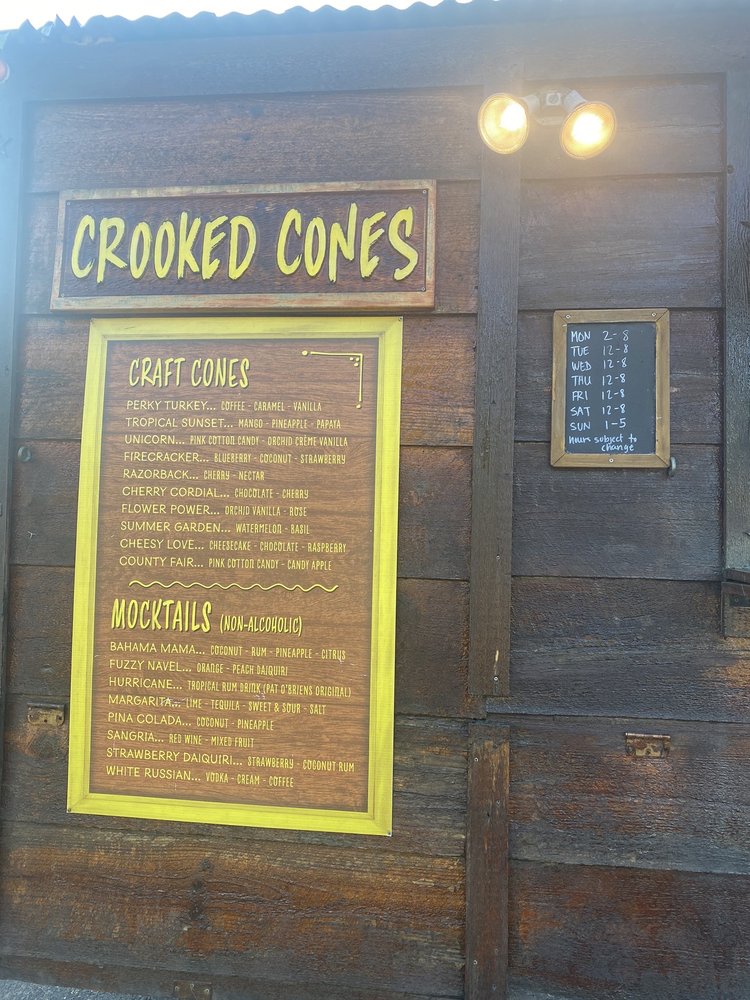 CROOKED CONES
CRAFT CONES
PERKY TURKEY... COFFEE - CARAMEL - VANILLA
TROPICAL SUNSET... MANGO - PINEAPPLE - PAPAYA
UNICORN... PINK COTTON CANDY - ORCHID CRÈME VANILLA
FIRECRACKER... BLUEBERRY - COCONUT - STRAWBERRY
RAZORBACK... CHERRY - NECTAR
CHERRY CORDIAL... CHOCOLATE - CHERRY
FLOWER POWER... ORCHID VANILLA - ROSE
SUMMER GARDEN... WATERMELON - BASIL
CHEESY LOVE... CHEESECAKE - CHOCOLATE - RASPBERRY
COUNTY FAIR... PINK COTTON CANDY - CANDY APPLE
MOCKTAILS (NON-ALCOHOLIC)
BAHAMA MAMA... COCONUT - RUM - PINEAPPLE - CITRUS
FUZZY NAVEL... ORANGE - PEACH DAIQUIRI
HURRICANE... TROPICAL RUM DRINK (PAT O'BRIENS ORIGINAL)
MARGARITA... LIME - TEQUILA - SWEET & SOUR - SALT
PINA COLADA... COCONUT - PINEAPPLE
SANGRIA... RED WINE - MIXED FRUIT
STRAWBERRY DAIQUIRI... STRAWBERRY - COCONUT RUM
WHITE RUSSIAN... VODKA - CREAM - COFFEE
MON 2-8
TUE 12-8
WED 12-8
THU 12-8
FRI 12-8
SAT 12-8
SUN 1-5
hours subject to
change